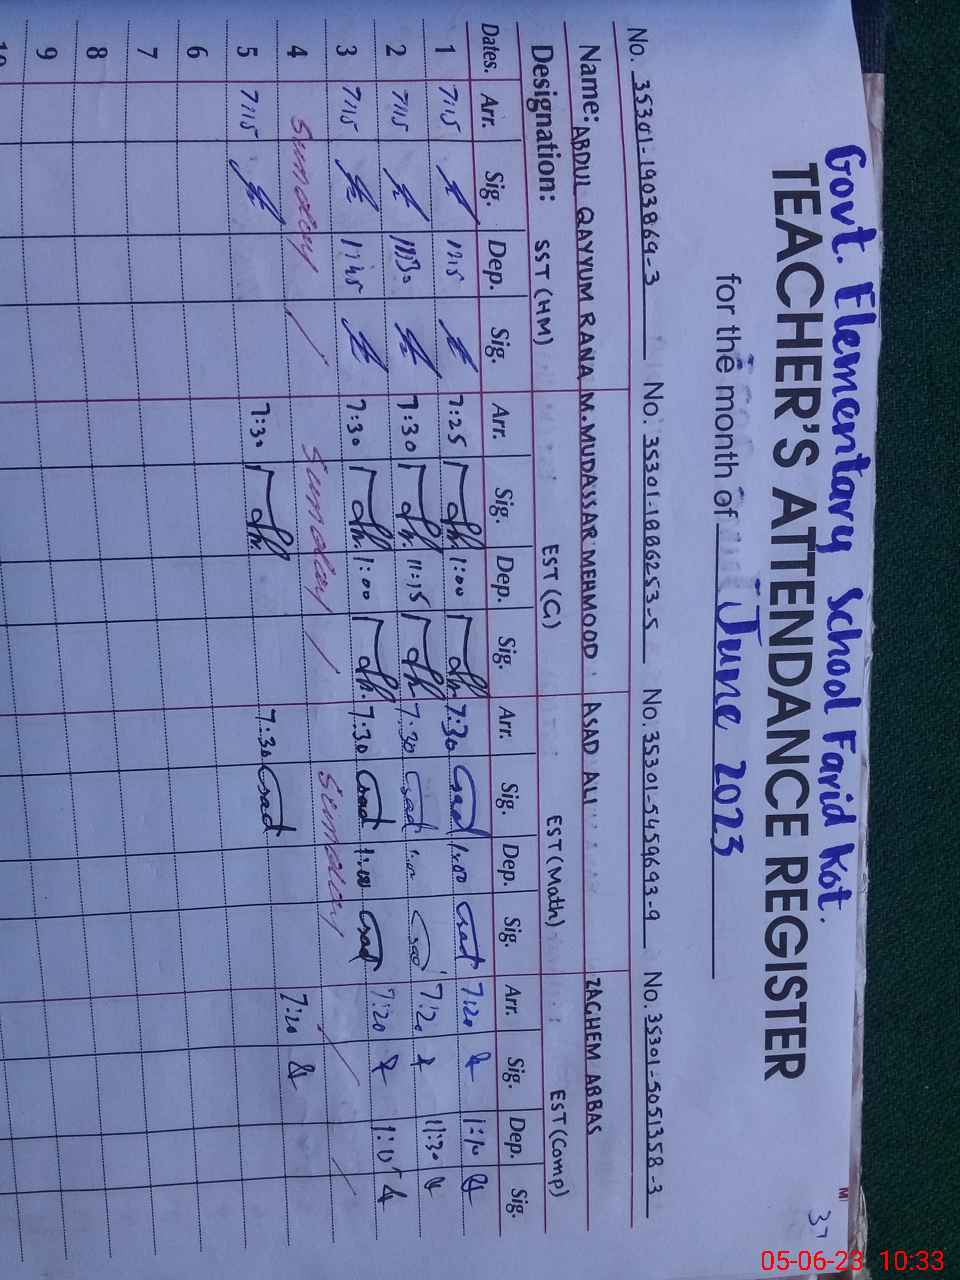 Govt. Elementary School Farid Kot.
37
TEACHER'S ATTENDANCE REGISTER
for the month of June 2023
No. 35301-1903869-3 No. 35301-1886253-5 No. 35301-5459693-9 No. 35301-5051358-3
Name: ABDUL QAYYUM RANA M. MUDASSAR MEHMOOD ASAD ALI ZAGHEM ABBAS
Designation: SST (HM) EST (C) EST (Math) EST (Comp)
Dates. Arr. Sig. Dep. Sig. Arr. Sig. Dep. Sig. Arr. Sig. Dep. Sig. Arr. Sig. Dep. Sig.
1 7:15 7:25 1:00 7:30 Asad 1:00 Asad 7:20 1:10
2 7:15 11:30 7:30 11:15 7:30 Asad Asad 7:20 11:30
3 7:15 11:45 7:30 1:00 7:30 Asad 1:00 Asad 7:20 1:10
4 Sunday Sunday Sunday
5 7:15 7:30 7:30 Asad 7:20
6
7
8
9
10
M
05-06-23 10:33